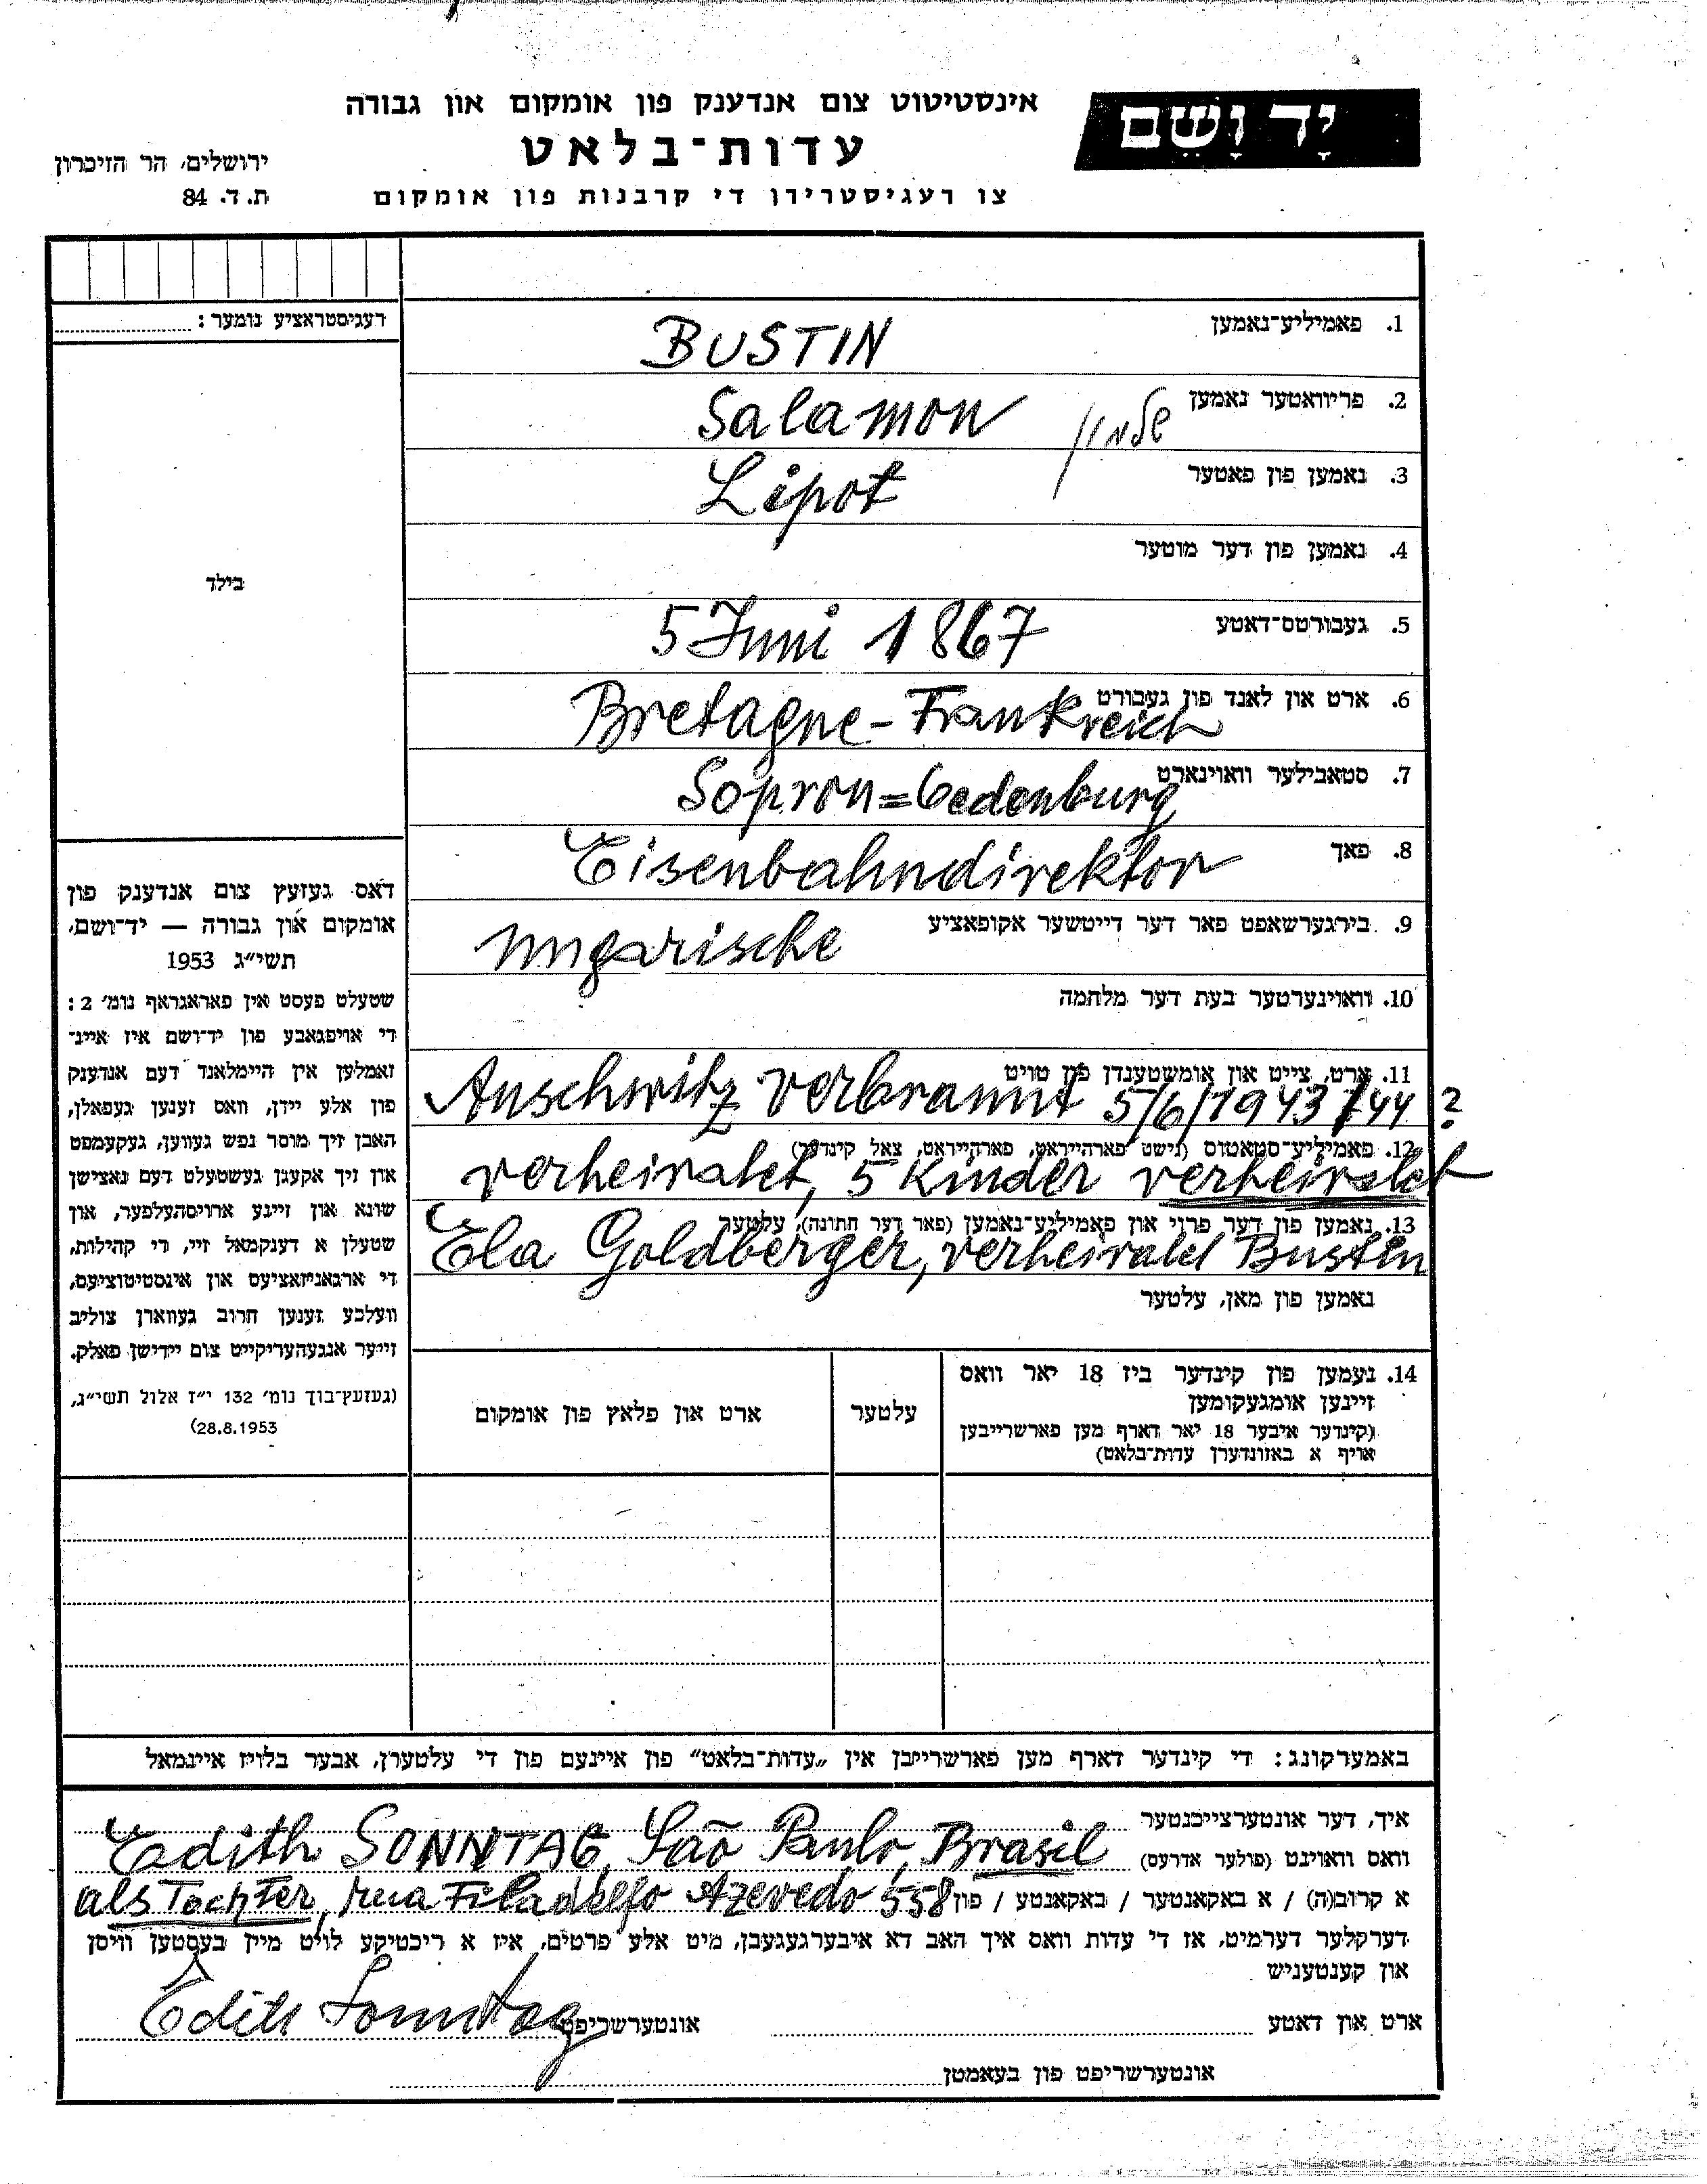 יָד וָשֵׁם
אינסטיטוט צום אנדענק פון אומקום און גבורה
עדות־בלאט
צו רעגיסטרירן די קרבנות פון אומקום
ירושלים, הר הזיכרון
ת.ד. 84
רעגיסטראציע נומער:
בילד
1. פאמיליע־נאמען BUSTIN
2. פריוואטער נאמען שלמון Salamon
3. נאמען פון פאטער Lipot
4. נאמען פון דער מוטער
5. געבורטס־דאטע 5 Juni 1867
6. ארט און לאנד פון געבורט Bretagne - Frankreich
7. סטאבילער וואוינארט Sopron = Oedenburg
8. פאך Eisenbahndirektor
9. בירגערשאפט פאר דער דייטשער אקופאציע Ungarische
10. וואוינערטער בעת דער מלחמה
11. ארט, צייט און אומשטענדן פון טויט
Auschwitz verbrannt 5/6/1943/44?
12. פאמיליע־סטאטוס (נישט פארהייראט, פארהייראט, צאל קינדער)
verheiratet, 5 Kinder verheiratet
13. נאמען פון דער פרוי און פאמיליע־נאמען (פאר דער חתונה), עלטער
Ela Goldberger, verheiratet Bustin
נאמען פון מאן, עלטער
דאס געזעץ צום אנדענק פון
אומקום און גבורה — יד־ושם,
תשי״ג 1953
שטעלט פעסט אין פאראגראף נומ׳ 2:
די אויפגאבע פון יד־ושם איז איינ־
זאמלען אין היימלאנד דעם אנדענק
פון אלע יידן, וואס זענען געפאלן,
האבן זיך מוסר נפש געווען, געקעמפט
און זיך אקעגן געשטעלט דעם נאצישן
שונא און זיינע ארויסהעלפער, און
שטעלן א דענקמאל זיי, די קהילות,
די ארגאניזאציעס און אינסטיטוציעס,
וועלכע זענען חרוב געווארן צוליב
זייער אנגעהעריקייט צום יידישן פאלק.
(געזעץ־בוך נומ׳ 132 י״ז אלול תשי״ג,
28.8.1953)
14. נעמען פון קינדער ביז 18 יאר וואס
זיינען אומגעקומען
(קינדער איבער 18 יאר דארף מען פארשרייבען
אויף א באזונדערן עדות־בלאט)
עלטער
ארט און פלאץ פון אומקום
באמערקונג: די קינדער דארף מען פארשרייבן אין „עדות־בלאט״ פון איינעם פון די עלטערן, אבער בלויז איינמאל
איך, דער אונטערצייכנטער
וואס וואוינט (פולער אדרעס) Edith SONNTAG, São Paulo, Brasil
א קרוב(ה) / א באקאנטער / באקאנטע / פון als Tochter, rua Filadelfo Azevedo 558
דערקלער דערמיט, אז די עדות וואס איך האב דא איבערגעגעבן, מיט אלע פרטים, איז א ריכטיקע לויט מיין בעסטען וויסן
און קענטעניש
ארט און דאטע
אונטערשריפט Edith Sonntag
אונטערשריפט פון בעאמטן